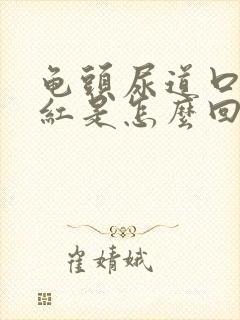 龟頭尿道口
紅是怎麼回
崔婧娥